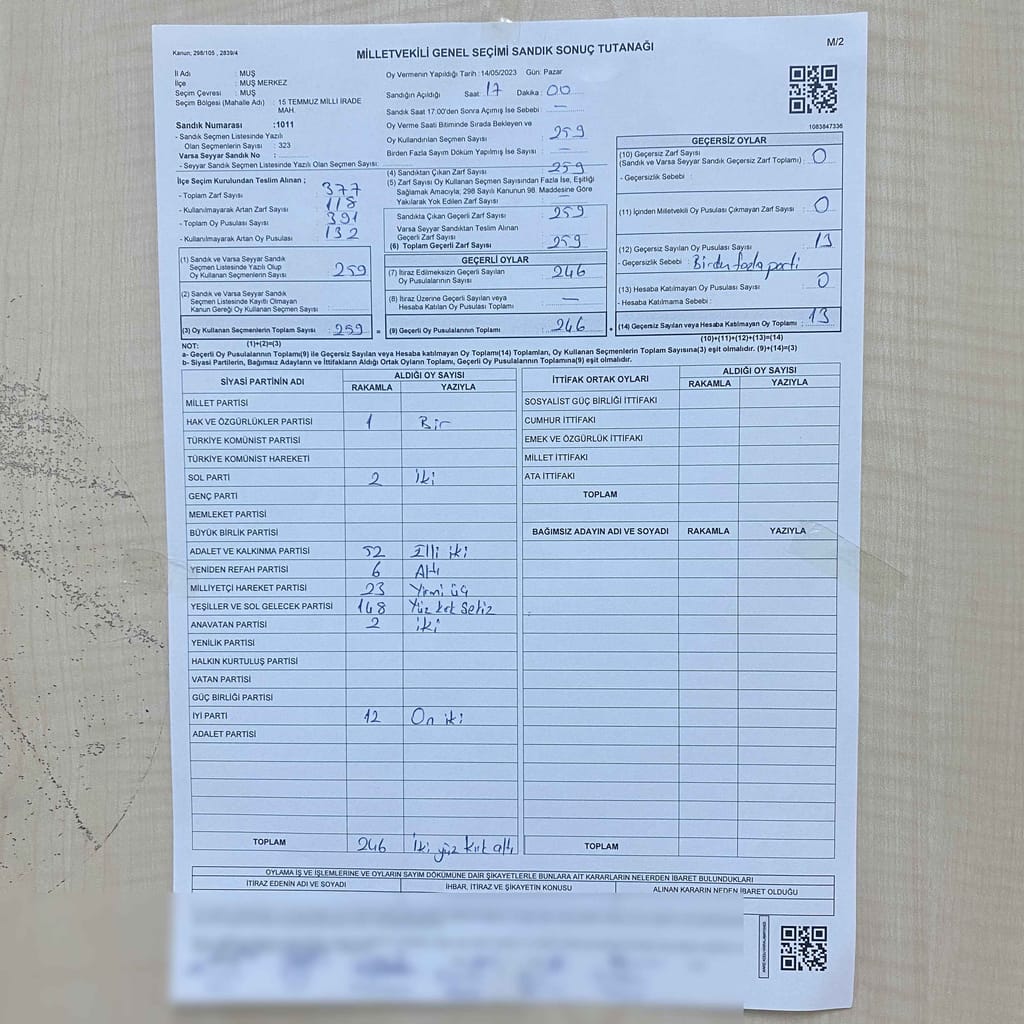 Kanun; 298/105 , 2839/4
MİLLETVEKİLİ GENEL SEÇİMİ SANDIK SONUÇ TUTANAĞI
M/2
İl Adı : MUŞ
İlçe : MUŞ MERKEZ
Seçim Çevresi : MUŞ
Seçim Bölgesi (Mahalle Adı) : 15 TEMMUZ MİLLİ İRADE
MAH.
Sandık Numarası :1011
- Sandık Seçmen Listesinde Yazılı
Olan Seçmenlerin Sayısı : 323
Varsa Seyyar Sandık No :
- Seyyar Sandık Seçmen Listesinde Yazılı Olan Seçmen Sayısı:
İlçe Seçim Kurulundan Teslim Alınan ;
- Toplam Zarf Sayısı 377
- Kullanılmayarak Artan Zarf Sayısı 118
- Toplam Oy Pusulası Sayısı 391
- Kullanılmayarak Artan Oy Pusulası 132
(1) Sandık ve Varsa Seyyar Sandık
Seçmen Listesinde Yazılı Olup
Oy Kullanan Seçmenlerin Sayısı : 259
(2) Sandık ve Varsa Seyyar Sandık
Seçmen Listesinde Kayıtlı Olmayan
Kanun Gereği Oy Kullanan Seçmen Sayısı :
(3) Oy Kullanan Seçmenlerin Toplam Sayısı : 259 =
Oy Vermenin Yapıldığı Tarih : 14/05/2023 Gün: Pazar
Sandığın Açıldığı Saat: 17 Dakika : 00
Sandık Saat 17:00'den Sonra Açımış İse Sebebi : —
Oy Verme Saati Bitiminde Sırada Bekleyen ve
Oy Kullandırılan Seçmen Sayısı : 259
Birden Fazla Sayım Döküm Yapılmış İse Sayısı : —
(4) Sandıktan Çıkan Zarf Sayısı : 259
(5) Zarf Sayısı Oy Kullanan Seçmen Sayısından Fazla İse, Eşitliği
Sağlamak Amacıyla; 298 Sayılı Kanunun 98. Maddesine Göre
Yakılarak Yok Edilen Zarf Sayısı :
Sandıkta Çıkan Geçerli Zarf Sayısı : 259
Varsa Seyyar Sandıktan Teslim Alınan
Geçerli Zarf Sayısı :
(6) Toplam Geçerli Zarf Sayısı : 259
GEÇERLİ OYLAR
(7) İtiraz Edilmeksizin Geçerli Sayılan
Oy Pusulalarının Sayısı : 246
(8) İtiraz Üzerine Geçerli Sayılan veya
Hesaba Katılan Oy Pusulası Toplamı : —
(9) Geçerli Oy Pusulalarının Toplamı : 246 +
1083847336
GEÇERSİZ OYLAR
(10) Geçersiz Zarf Sayısı
(Sandık ve Varsa Seyyar Sandık Geçersiz Zarf Toplamı) : 0
- Geçersizlik Sebebi :
(11) İçinden Milletvekili Oy Pusulası Çıkmayan Zarf Sayısı : 0
(12) Geçersiz Sayılan Oy Pusulası Sayısı : 13
- Geçersizlik Sebebi : Birden fazla parti
(13) Hesaba Katılmayan Oy Pusulası Sayısı : 0
- Hesaba Katılmama Sebebi :
(14) Geçersiz Sayılan veya Hesaba Katılmayan Oy Toplamı : 13
NOT: (1)+(2)=(3) (10)+(11)+(12)+(13)=(14)
a- Geçerli Oy Pusulalarının Toplamı(9) ile Geçersiz Sayılan veya Hesaba katılmayan Oy Toplamı(14) Toplamları, Oy Kullanan Seçmenlerin Toplam Sayısına(3) eşit olmalıdır. (9)+(14)=(3)
b- Siyasi Partilerin, Bağımsız Adayların ve İttifakların Aldığı Ortak Oyların Toplamı, Geçerli Oy Pusulalarının Toplamına(9) eşit olmalıdır.
SİYASİ PARTİNİN ADI ALDIĞI OY SAYISI
RAKAMLA YAZIYLA
MİLLET PARTİSİ
HAK VE ÖZGÜRLÜKLER PARTİSİ 1 Bir
TÜRKİYE KOMÜNİST PARTİSİ
TÜRKİYE KOMÜNİST HAREKETİ
SOL PARTİ 2 İki
GENÇ PARTİ
MEMLEKET PARTİSİ
BÜYÜK BİRLİK PARTİSİ
ADALET VE KALKINMA PARTİSİ 52 Elli iki
YENİDEN REFAH PARTİSİ 6 Altı
MİLLİYETÇİ HAREKET PARTİSİ 23 Yirmi üç
YEŞİLLER VE SOL GELECEK PARTİSİ 148 Yüz kırk sekiz
ANAVATAN PARTİSİ 2 iki
YENİLİK PARTİSİ
HALKIN KURTULUŞ PARTİSİ
VATAN PARTİSİ
GÜÇ BİRLİĞİ PARTİSİ
İYİ PARTİ 12 On iki
ADALET PARTİSİ
TOPLAM 246 İki yüz kırk altı
İTTİFAK ORTAK OYLARI ALDIĞI OY SAYISI
RAKAMLA YAZIYLA
SOSYALİST GÜÇ BİRLİĞİ İTTİFAKI
CUMHUR İTTİFAKI
EMEK VE ÖZGÜRLÜK İTTİFAKI
MİLLET İTTİFAKI
ATA İTTİFAKI
TOPLAM
BAĞIMSIZ ADAYIN ADI VE SOYADI RAKAMLA YAZIYLA
TOPLAM
OYLAMA İŞ VE İŞLEMLERİNE VE OYLARIN SAYIM DÖKÜMÜNE DAİR ŞİKAYETLERLE BUNLARA AİT KARARLARIN NELERDEN İBARET BULUNDUKLARI
İTİRAZ EDENİN ADI VE SOYADI İHBAR, İTİRAZ VE ŞİKAYETİN KONUSU ALINAN KARARIN NEDEN İBARET OLDUĞU